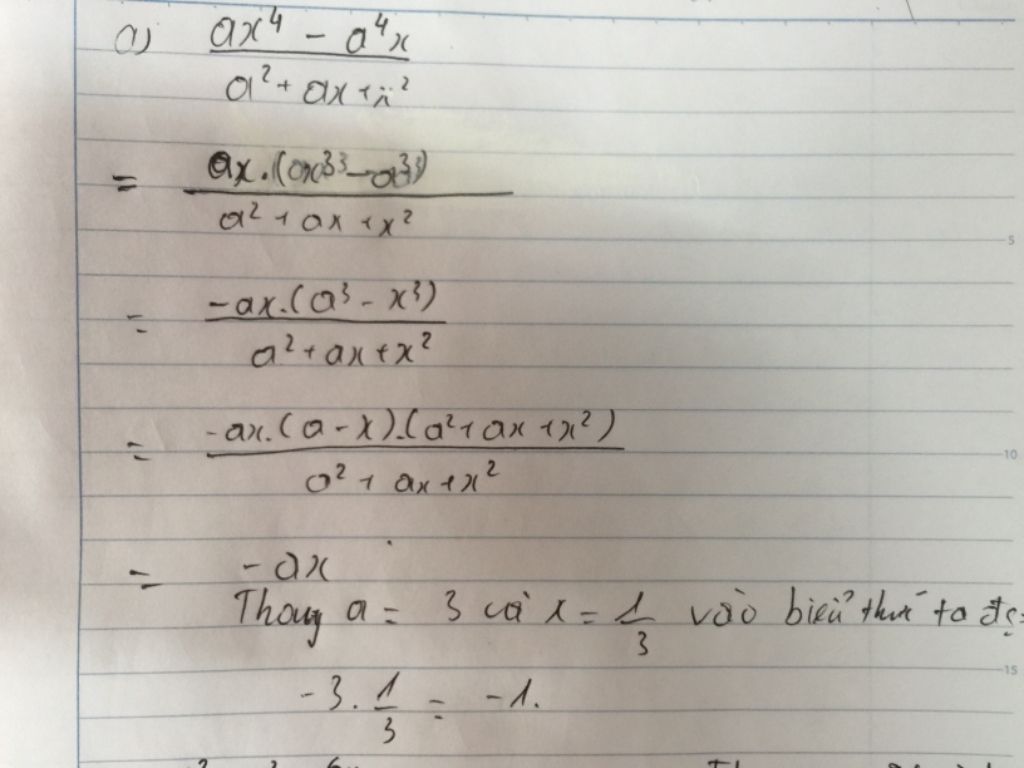 a) \frac{ax^4 - a^4x}{a^2 + ax + x^2}
= \frac{ax.(x^3 - a^3)}{a^2 + ax + x^2}
= \frac{-ax.(a^3 - x^3)}{a^2 + ax + x^2}
= \frac{-ax.(a - x).(a^2 + ax + x^2)}{a^2 + ax + x^2}
= -ax
Thay a = 3 và x = \frac{1}{3} vào biểu thức ta đc:
-3 . \frac{1}{3} = -1.
5
10
15